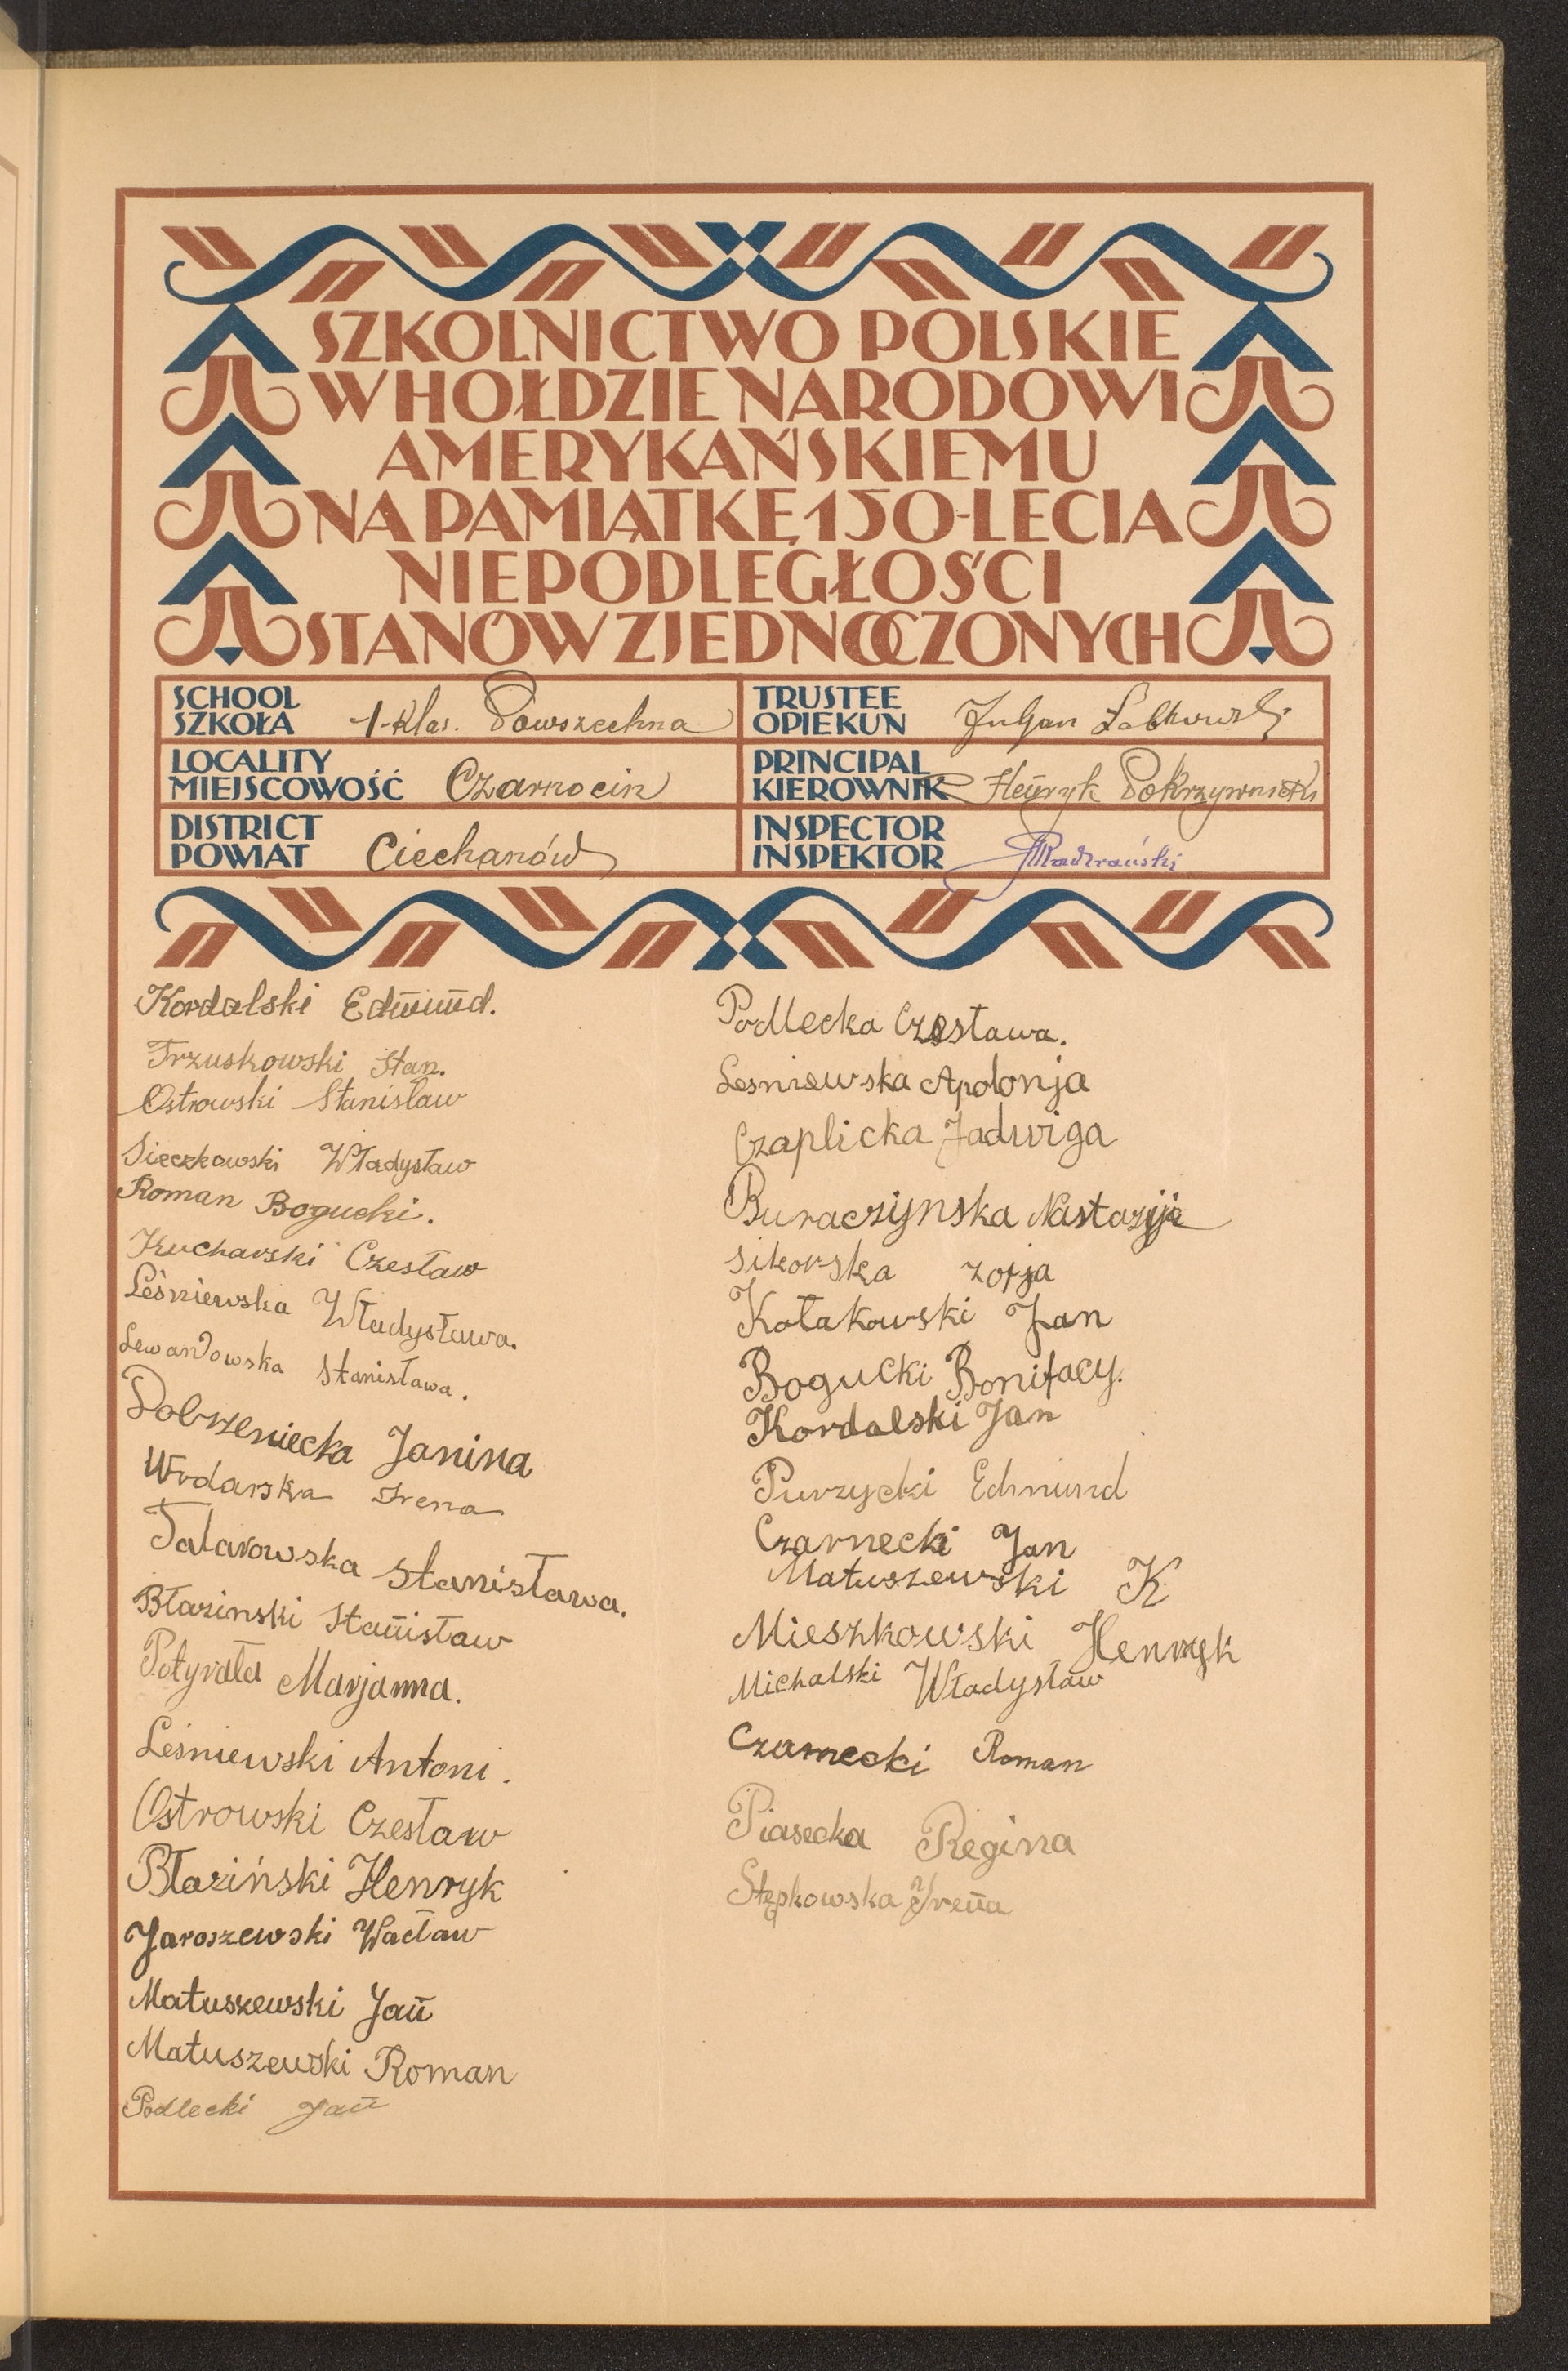 SZKOLNICTWO POLSKIE
W HOŁDZIE NARODOWI
AMERYKAŃSKIEMU
NA PAMIĄTKĘ 150-LECIA
NIEPODLEGŁOŚCI
STANÓW ZJEDNOCZONYCH
SCHOOL
SZKOŁA 1-klas. Powszechna
TRUSTEE
OPIEKUN Juljan
LOCALITY
MIEJSCOWOŚĆ Czarnocin
PRINCIPAL
KIEROWNIK Henryk Pokrzywnicki
DISTRICT
POWIAT Ciechanów
INSPECTOR
INSPEKTOR
Kordalski Edmund.
Trzuskowski Stan.
Ostrowski Stanisław
Sieczkowski Władysław
Roman Bogucki.
Kucharski Czesław
Leśniewska Władysława.
Lewandowska Stanisława.
Dobrzeniecka Janina
Wodarska Irena
Talarowska Stanisława.
Błazinski Stanisław
Potyrała Marjanna.
Leśniewski Antoni.
Ostrowski Czesław
Błaziński Henryk
Jaroszewski Wacław
Matuszewski Jan
Matuszewski Roman
Podlecki Jan
Podlecka Czesława.
Lesniewska Apolonja
Czaplicka Jadwiga
Buraczynska Nastazja
Sikorska Zofja
Kołakowski Jan
Bogucki Bonifacy.
Kordalski Jan
Purzycki Edmund
Czarnecki Jan
Matuszewski K
Mieszkowski Henryk
Michalski Władysław
Czarnecki Roman
Piasecka Regina
Stępkowska Irena